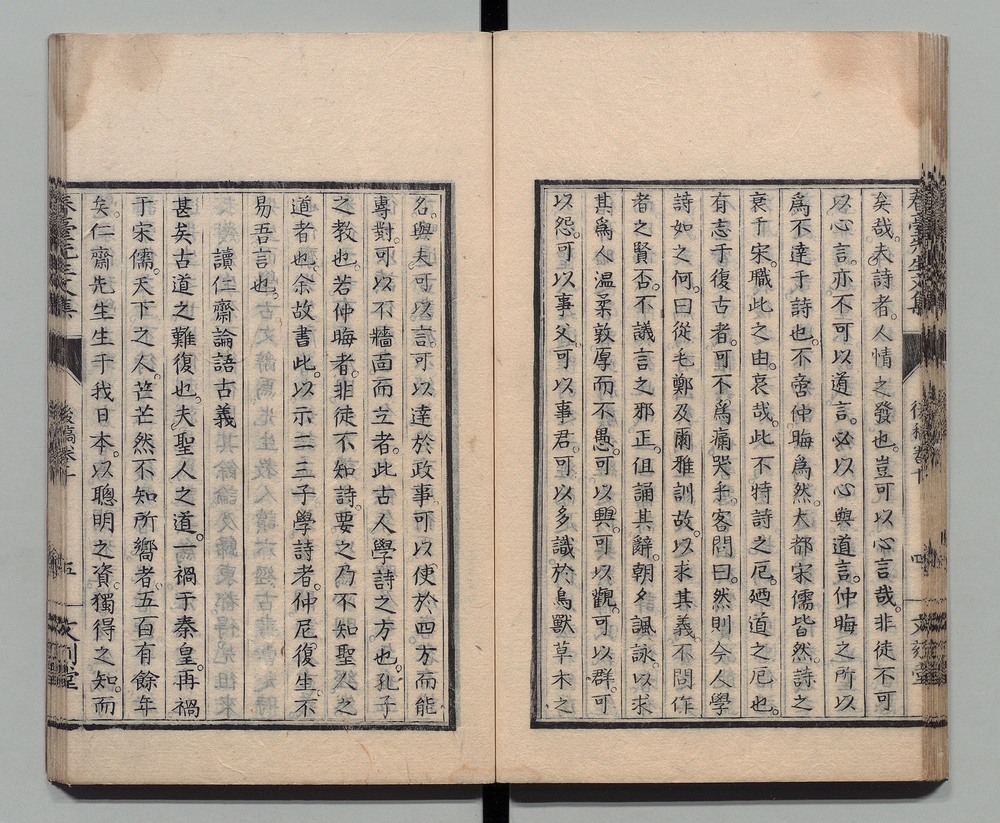 矣哉。夫詩者。人情之發也。豈可以心言哉。非徒不可
以心言。亦不可以道言。必以心與道言。仲晦之所以
爲不達于詩也。不啻仲晦爲然。大都宋儒皆然。詩之
衰于宋。職此之由。哀哉。此不特詩之厄。廼道之厄也。
有志于復古者。可不爲痛哭乎。客問曰。然則今人學
詩如之何。曰從毛鄭及爾雅訓故。以求其義。不問作
者之賢否。不議言之邪正。但誦其辭。朝夕諷詠。以求
其爲人溫柔敦厚而不愚。可以興。可以觀。可以群。可
以怨。可以事父。可以事君。可以多識於鳥獸草木之
名。與夫可以言。可以達於政事。可以使於四方而能
專對。可以不牆面而立者。此古人學詩之方也。孔子
之教也。若仲晦者。非徒不知詩。要之乃不知聖人之
道者也。余故書此。以示二三子學詩者。仲尼復生。不
易吾言也。
讀仁齋論語古義
甚矣古道之難復也。夫聖人之道。一禍于秦皇。再禍
于宋儒。天下之人。芒芒然不知所嚮者。五百有餘年
矣。仁齋先生生于我日本。以聰明之資。獨得之知。而
春臺先生文集
後稿卷十
五